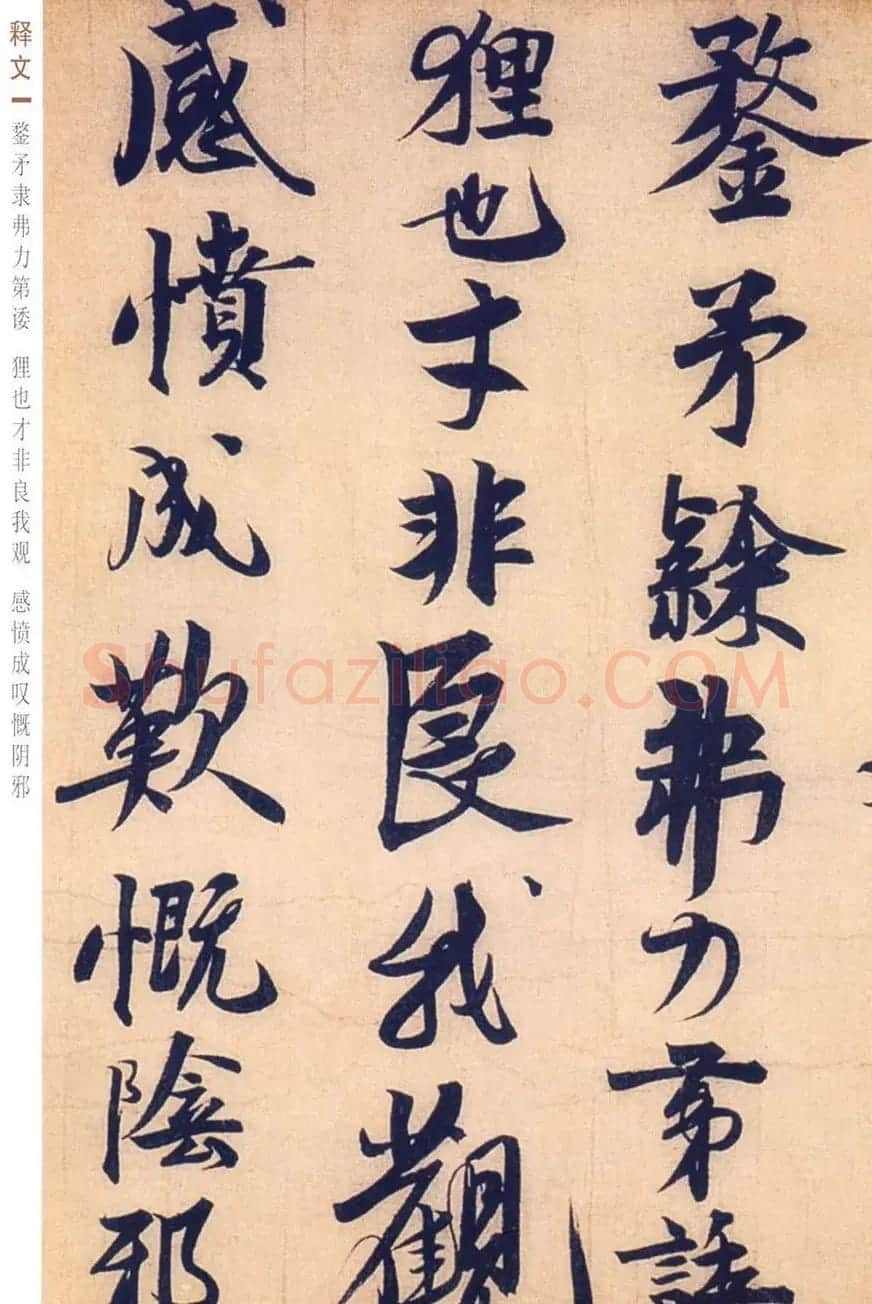 鍪矛隸弗力第
狸也才非良我觀
感憤成歎慨陰邪
释文
鍪矛隶弗力第诿 狸也才非良我观 感愤成叹慨阴邪
Shufaziliao.COM